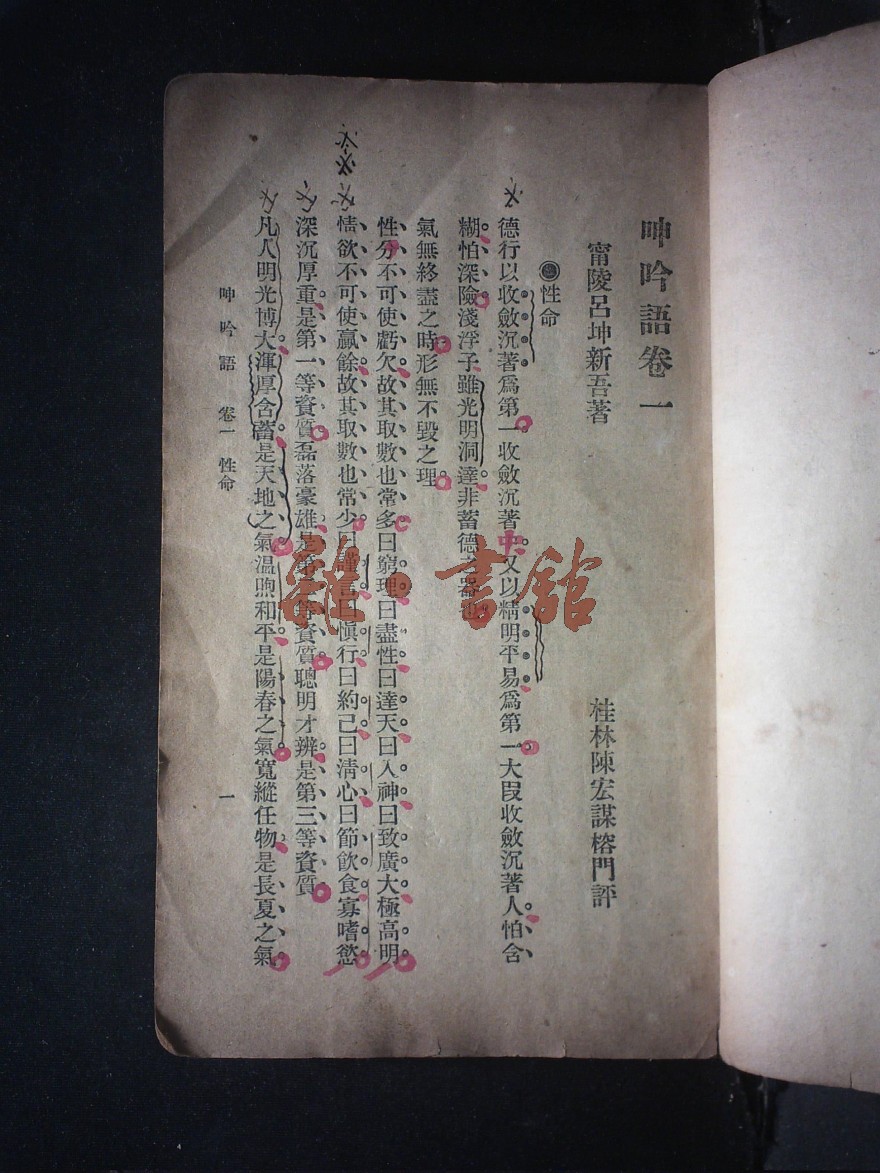 呻吟語卷一
甯陵呂坤新吾著 桂林陳宏謀榕門評
性命
德行以收斂沉著爲第一收斂沉著中又以精明平易爲第一大段收斂沉著人怕含
糊怕深險淺浮子雖光明洞達非蓄德之器也
氣無終盡之時形無不毀之理
性分不可使虧欠故其取數也常多曰窮理曰盡性曰達天曰入神曰致廣大極高明
情欲不可使贏餘故其取數也常少曰謹言曰愼行曰約己曰清心曰節飲食寡嗜慾
深沉厚重是第一等資質磊落豪雄是第二等資質聰明才辨是第三等資質
凡人明光博大渾厚含蓄是天地之氣溫煦和平是陽春之氣寬縱任物是長夏之氣
呻吟語 卷一 性命 一
雜·書館